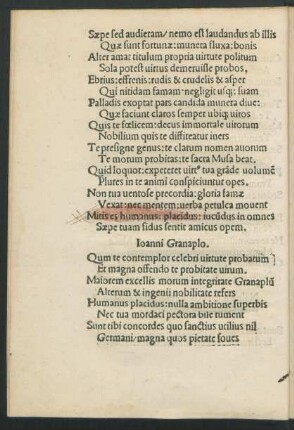 Sæpe sed audieram/ nemo est laudandus ab illis
Quæ sunt fortunæ: munera fluxa: bonis
Alter amat titulum propria virtute politum
Sola potest virtus demeruisse probos,
Ebrius: effrenis: rudis & crudelis & asper
Qui nitidam famam negligit usq: suam
Palladis exoptat pars candida munera diuę:
Quæ faciunt claros semper ubiq; viros
Quis te fœlicem: decus immortale virorum
Nobilium quis te diffiteatur iners
Te presigne genus: te clarum nomen auorum
Te morum probitas: te sacra Musa beat,
Quid loquor: expeteret uir⁹ tua grãde volumẽ
Plures in te animi conspiciuntur opes,
Non tua uentosæ precordia: gloria famæ
Vexat nec mentem: uerba petulca mouent
Mitis es humanus: placidus: iucũdus in omnes
Sæpe tuam sidus sentit amicus opem.
Ioanni Granaplo.
Qum te contemplor celebri uirtute probatum
Et magna offendo te probitate uirum.
Maiorem excellis morum integritate Granaplũ
Alterum & ingenii nobilitate refers
Humanus placidus: nulla ambitione superbis
Nec tua mordaci pectora bile tument
Sunt tibi concordes quo sanctius utilius nil
Germani/ magna quos pietate foues